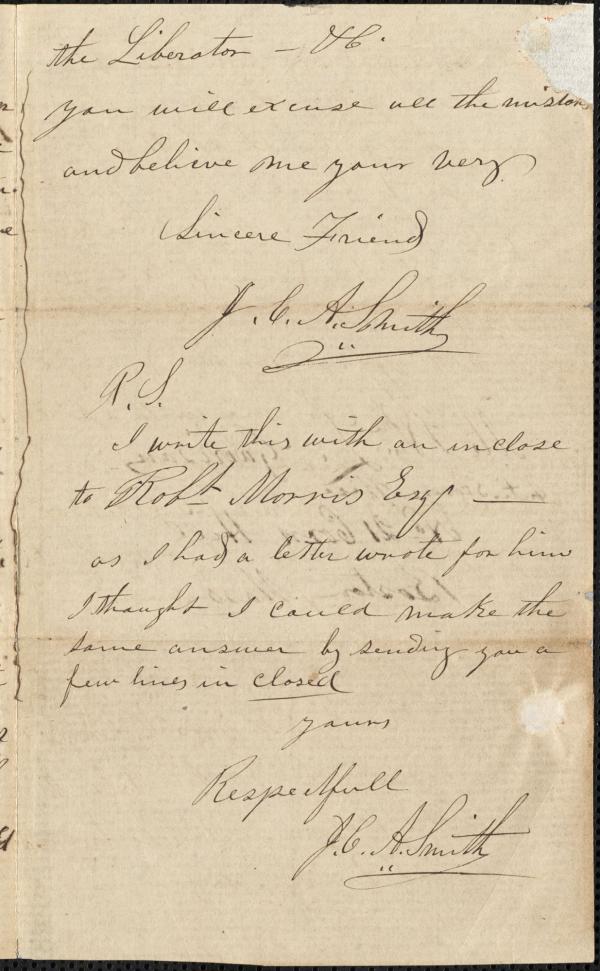 the Liberator — &C.
you will excuse all the mistak
and believe me your very
Sincere Friend
J. C. A. Smith
P. S.
I write this with an inclose
to Robt. Morris Esqr —
as I had a letter wrote for him
I thought I could make the
same answer by sending you a
few lines in closed
yours
Respectfull
J. C. A. Smith